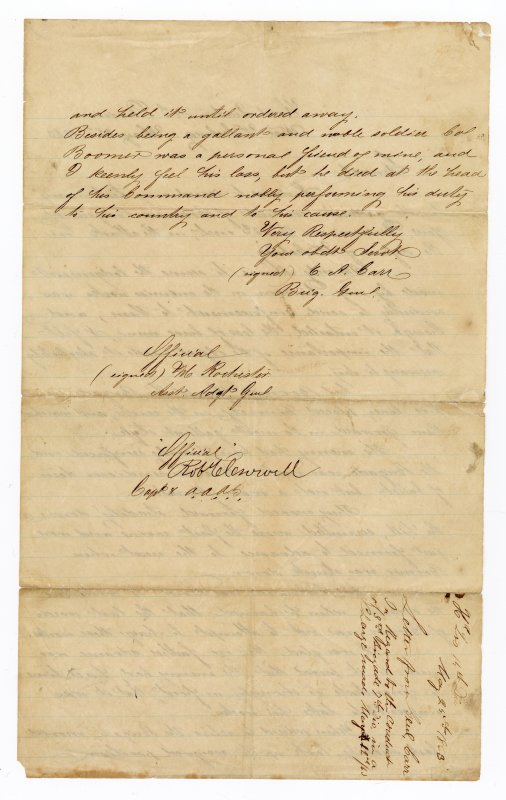 and held it until ordered away.
Besides being a gallant and noble soldier Col.
Boomer was a personal friend of mine, and
I keenly feel his loss, but he died at the head
of his Command nobly performing his duty
to his country and to his cause.
Very Respectfully
Your obdt Servt.
(signed) E A. Carr
Brig. Genl.
Official
(signed) Rochester
Asst. Adgt. Genl
"Official"
Capt &. A.A.A.G.
May 25th 1863
Letter from Genl. Carr
In Regard to the Conduct
of 3rd Brigade 7th Div. in a
Charge made May 22d/63